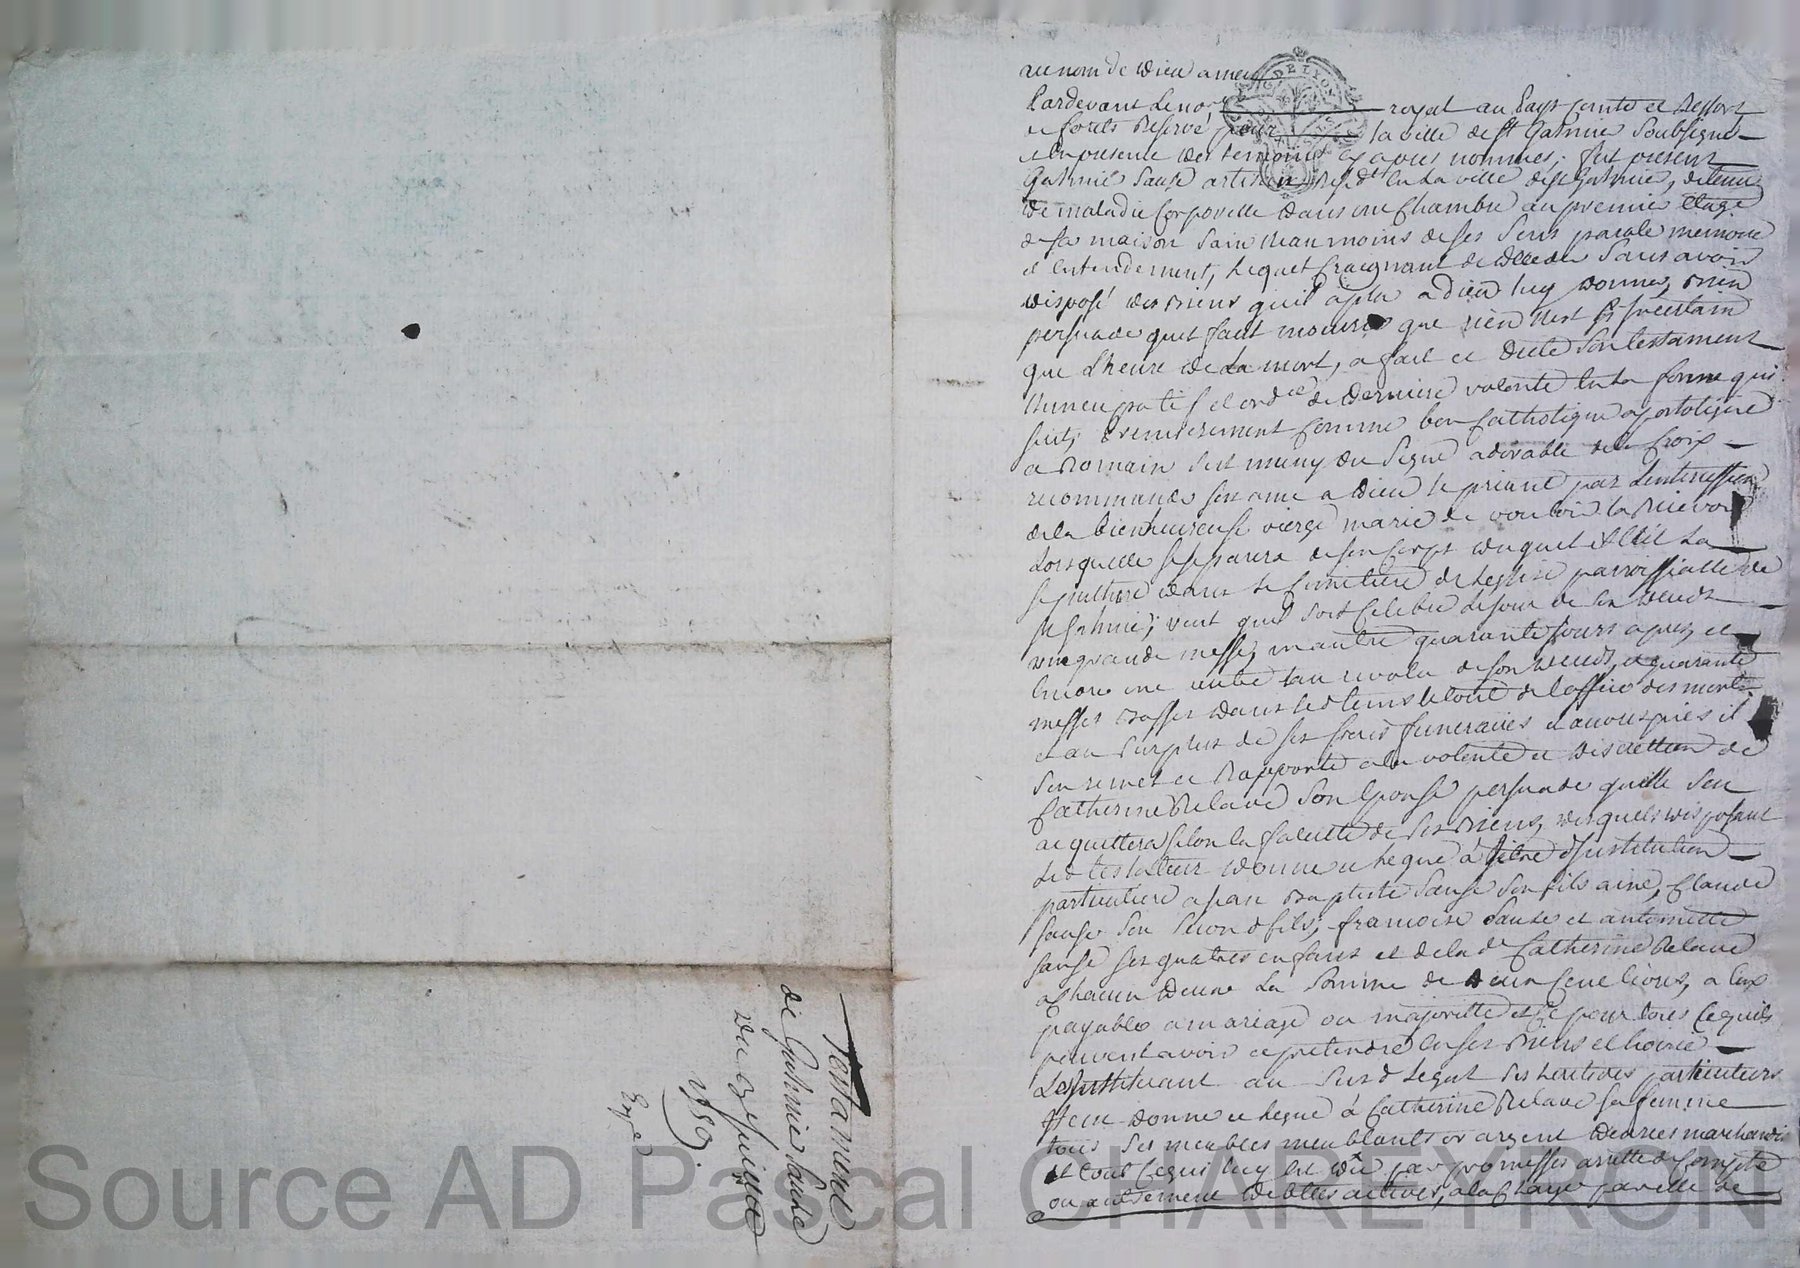 au nom de Dieu amen
Pardevant le no.re royal au Pays comté et Ressort
de forets Reservé pour la ville de st Galmier soubsigné
et en presence des temoins cy apres nommés, fut present
Galmier sause artisan Resid.t en la ville de st Galmier, detenu
de maladie corporelle dans une chambre au premier etage
de sa maison sain neanmoins de ses sens parole memoire
et entendement, lequel craignant de decedé sans avoir
disposé des Biens quil a plu a dieu luy donner, bien
persuadé quil faut mourir que rien nest si incertain
que lheure de la mort, a fait et dicté son testament
nuncupatif et ord.ce de derniere volonté en la forme qui
suit; premierement comme bon catholique apostolique
a Romain sest muny du signe adorable de la croix
recommandé son ame a Dieu le priant par lintercession
de la bienheureuse vierge marie de vouloir la Recevoir
lorsquelle se separera de son corps duquel il élit la
sepulture dans le cimetiere de leglise parroissialle de
st Galmier; veut quil soit celebré le jour de son deceds
une grande messe, un autre quarante jours apres, et
encore une autre lan revolu de son deceds, et quarante
messes Basses dans led tems le tout de loffice des morts
et au surplus de ses frais funeraires et a
sen remet et Rapporte a la volonté et discretion de
Catherine Relave son epouse persuadé quelle sen
acquittera selon la faculté de ses Biens, desquels disposant
led testateur donne et legue à titre dinstitution
particuliere a jean Baptiste sause son fils ainé, Claude
sause son second fils, francoise sause et antoinette
sause ses quatres enfans et de lad.e Catherine Relave
a chacun deune la somme de deux cent livres, a eux
payable a mariage ou majorité et ce pour tout ce quils
peuvent avoir et pretendre en ses Biens et hoirie
les instituant au susd legat ses heritiers particuliers
Item donne et legue à Catherine Relave sa femme
tous ses meubles meublants or argent denrées marchandis
et tout ce qui luy est dû par promesses arretté de compte
ou autrement dettes actives, a la charge par elle de
Testament
de Galmier sause
du 23e juillet
Exp.é
Source AD Pascal CHAREYRON